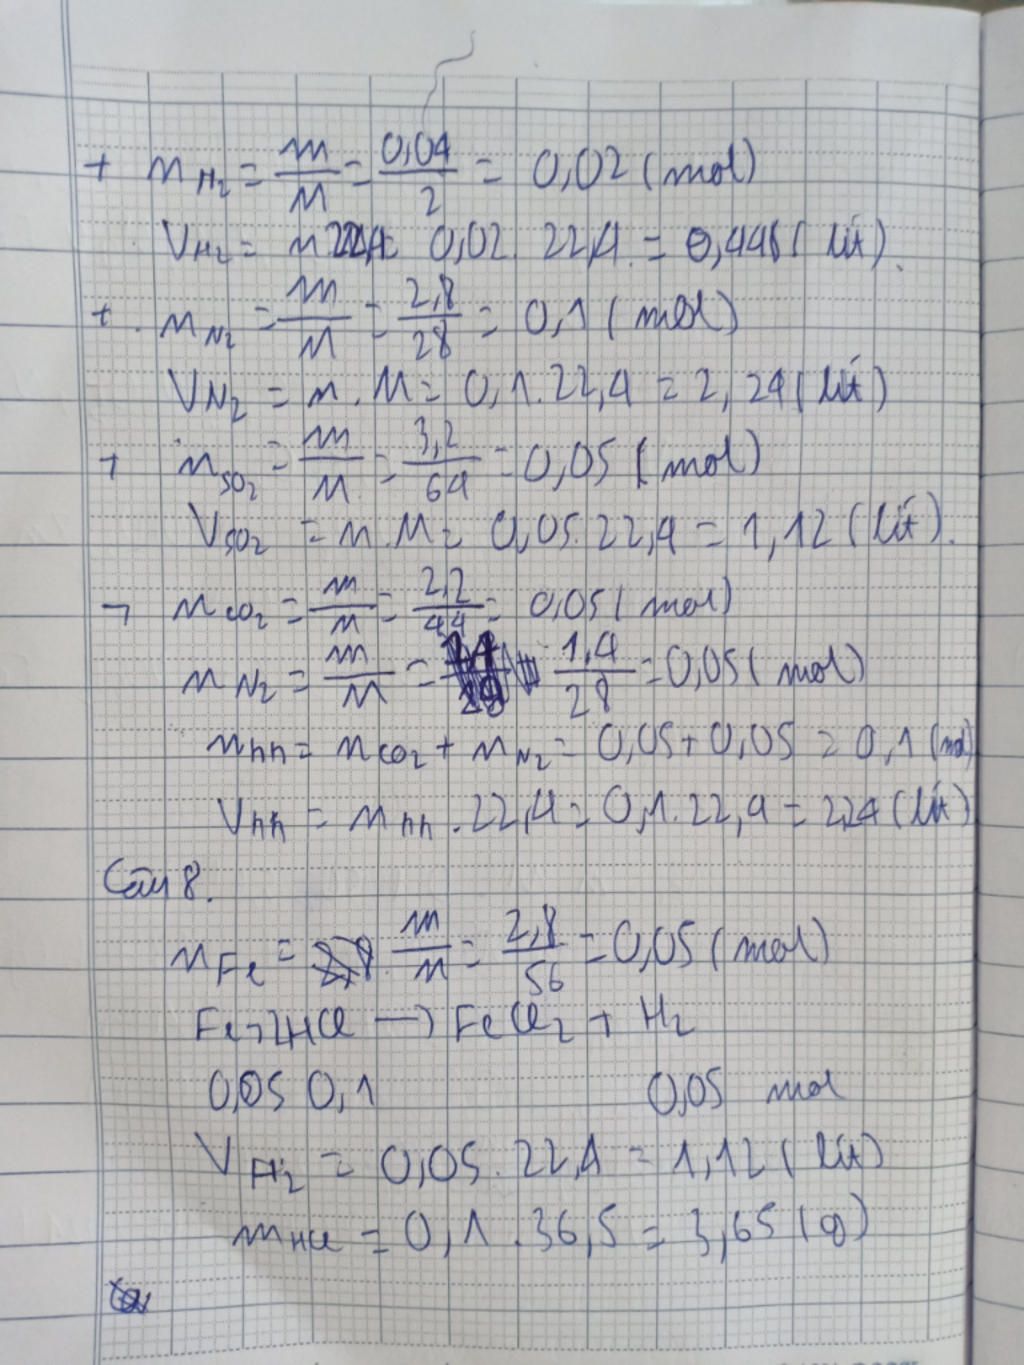 + n H₂ = m/M = 0,04/2 = 0,02 (mol)
V H₂ = n 22,4 = 0,02 . 22,4 = 0,448 (lít).
+ . n N₂ = m/M = 2,8/28 = 0,1 (mol)
V N₂ = n . M = 0,1 . 22,4 = 2,24 (lít)
+ n SO₂ = m/M = 3,2/64 = 0,05 (mol)
V SO₂ = n . M = 0,05 . 22,4 = 1,12 (lít).
¬ n CO₂ = m/M = 2,2/44 = 0,05 (mol)
n N₂ = m/M = 1,4/28 = 0,05 (mol)
n hh = n CO₂ + n N₂ = 0,05 + 0,05 = 0,1 (mol)
V hh = n hh . 22,4 = 0,1 . 22,4 = 2,24 (lít)
Câu 8.
n Fe = m/M = 2,8/56 = 0,05 (mol)
Fe + 2HCl → FeCl₂ + H₂
0,05 0,1 0,05 mol
V H₂ = 0,05 . 22,4 = 1,12 (lít)
m HCl = 0,1 . 36,5 = 3,65 (g)